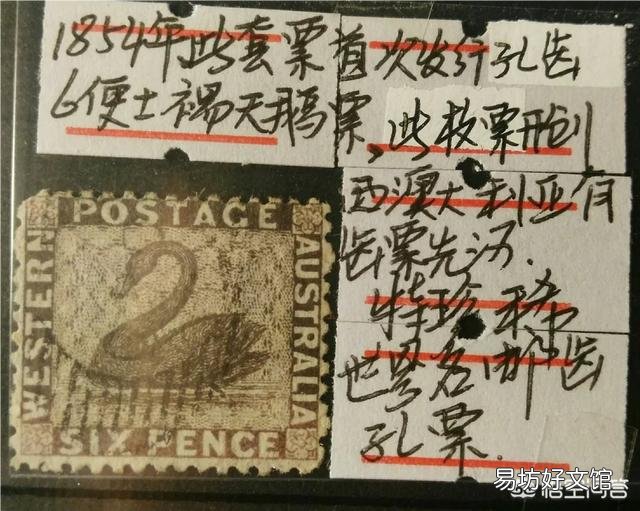 1854年此套票首次发行孔齿
6便士褐天鹅票,此枚票开创
西澳大利亚有
齿票先河.
特珍稀
世界名邮齿
孔票.
POSTAGE
WESTERN
AUSTRALIA
SIX PENCE
易坊好文馆
悟空问答